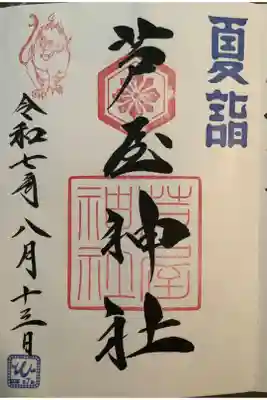 夏詣
芦屋神社
屋
神社
令和七年八月十三日